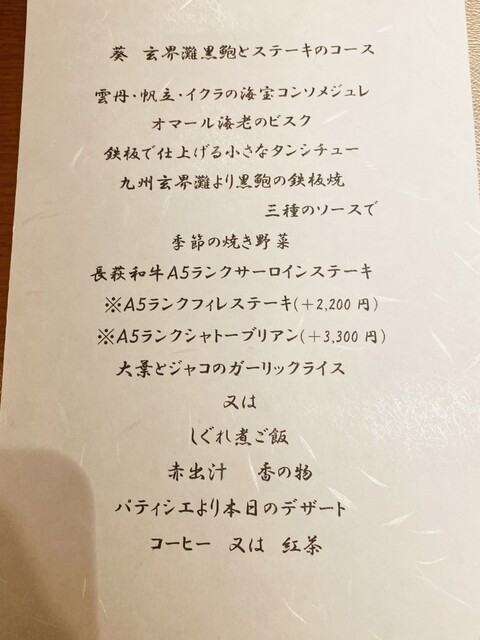 葵 玄界灘黒鮑とステーキのコース
雲丹・帆立・イクラの海宝コンソメジュレ
オマール海老のビスク
鉄板で仕上げる小さなタンシチュー
九州玄界灘より黒鮑の鉄板焼
三種のソースで
季節の焼き野菜
長萩和牛A5ランクサーロインステーキ
※A5ランクフィレステーキ(+2,200 円)
※A5ランクシャトーブリアン(+3,300 円)
大葉とジャコのガーリックライス
又は
しぐれ煮ご飯
赤出汁 香の物
パティシエより本日のデザート
コーヒー 又は 紅茶